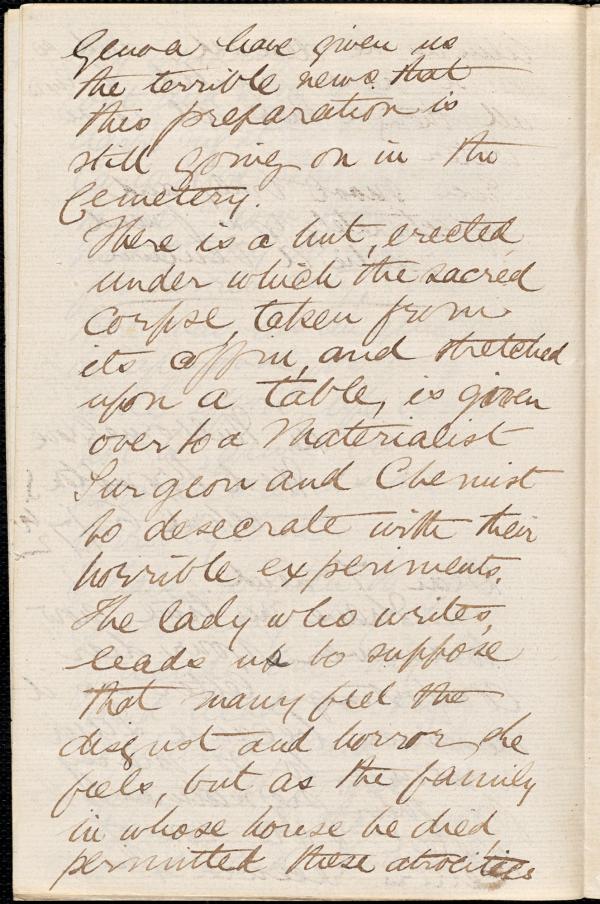 Genoa have given us
the terrible news that
this preparation is
still going on in the
Cemetery.
There is a hut, erected,
under which the sacred
corpse, taken from
its coffin, and stretched
upon a table, is given
over to a Materialist
Surgeon and Chemist
to desecrate with their
horrible experiments.
The lady who writes,
leads us to suppose
that many feel the
disgust and horror she
feels, but as the family
in whose house he died,
permitted these atrocities